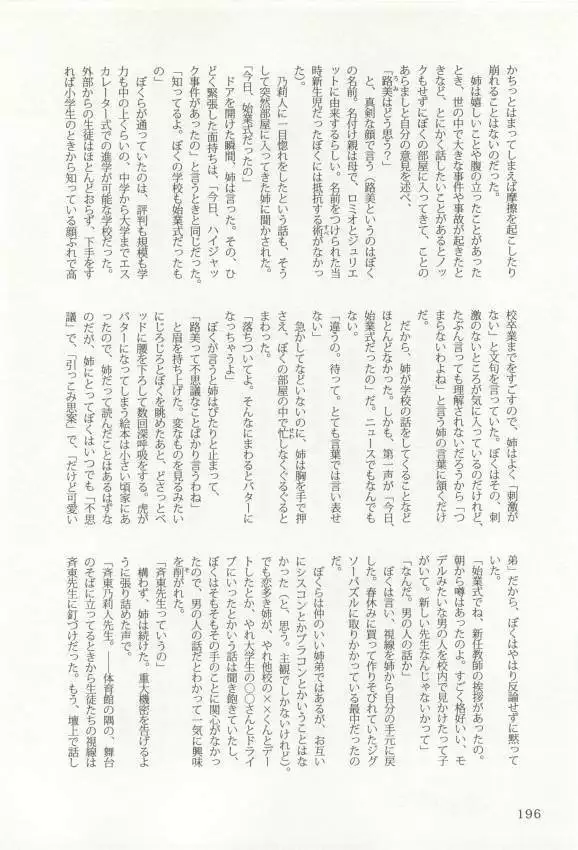 かちっとはまってしまえば摩擦を起こしたり
崩れることはないのだった。
　姉は嬉しいことや腹の立ったことがあった
とき、世の中で大きな事件や事故が起きたと
きなど、とにかく話したいことがあるとノッ
クもせずにぼくの部屋に入ってきて、ことの
あらましと自分の意見を述べ、
「路美はどう思う？」
　と、真剣な顔で言う（路美というのはぼく
の名前。名付け親は母で、ロミオとジュリエ
ットに由来するらしい。名前をつけられた当
時新生児だったぼくには抵抗する術がなかっ
た）。
　乃莉人に一目惚れをしたという話も、そう
して突然部屋に入ってきた姉に聞かされた。
「今日、始業式だったの」
　ドアを開けた瞬間、姉は言った。その、ひ
どく緊張した面持ちは、「今日、ハイジャッ
ク事件があったの」と言うときと同じだった。
「知ってるよ。ぼくの学校も始業式だったも
の」
　ぼくらが通っていたのは、評判も規模も学
力も中の上くらいの、中学から大学までエス
カレーター式での進学が可能な学校だった。
外部からの生徒はほとんどおらず、下手をす
れば小学生のときから知っている顔ぶれで高
校卒業までをすごすので、姉はよく「刺激が
ない」と文句を言っていた。ぼくはその、刺
激のないところが気に入っているのだけれど、
たぶん言っても理解されないだろうから「つ
まらないわよね」と言う姉の言葉に頷くだけ
だ。
　だから、姉が学校の話をしてくることなど
ほとんどなかった。しかも、第一声が「今日、
始業式だったの」だ。ニュースでもなんでも
ない。
「違うの。待って。とても言葉では言い表せ
ない」
　急かしてなどいないのに、姉は胸を手で押
さえ、ぼくの部屋の中で忙しなくぐるぐると
まわった。
「落ちついてよ。そんなにまわるとバターに
なっちゃうよ」
　ぼくが言うと姉はぴたりと止まって、
「路美って不思議なことばかり言うわね」
　と眉を持ち上げた。変なものを見るみたい
にじろじろとぼくを眺めたあと、どさっとベ
ッドに腰を下ろして数回深呼吸をする。虎が
バターになってしまう絵本は小さい頃家にあ
ったので、姉だって読んだことはあるはずな
のだが、姉にとってぼくはいつでも「不思
議」で、「引っこみ思案」で、「だけど可愛い
弟」だから、ぼくはやはり反論せずに黙って
いた。
「始業式でね、新任教師の挨拶があったの。
朝から噂はあったのよ。すごく格好いい、モ
デルみたいな男の人を校内で見かけたって子
がいて。新しい先生なんじゃないかって」
「なんだ。男の人の話か」
　ぼくは言い、視線を姉から自分の手元に戻
した。春休みに買って作りそびれていたジグ
ソーパズルに取りかかっている最中だったの
だ。
　ぼくらは仲のいい姉弟ではあるが、お互い
にシスコンとかブラコンとかいうことはな
かった（と、思う。主観でしかないけれど）。
でも恋多き姉が、やれ他校の××くんとデー
トしたとか、やれ大学生の〇〇さんとドライ
ブにいったとかいう話は聞き飽きていたし、
ぼくはそもそもその手のことに関心がなかっ
たので、男の人の話だとわかって一気に興味
を削がれた。
「斉東先生っていうの」
　構わず、姉は続けた。重大機密を告げるよ
うに張り詰めた声で。
「斉東乃莉人先生。――体育館の隅の、舞台
のそばに立ってるときから生徒たちの視線は
斉東先生に釘づけだった。もう、壇上で話し
196